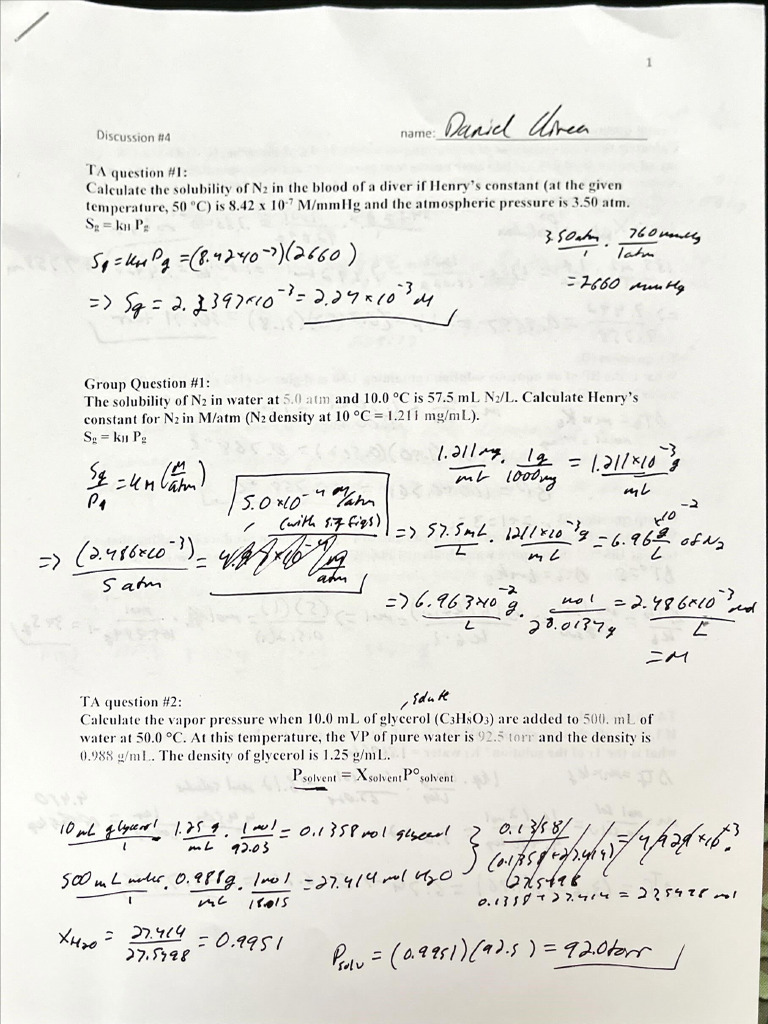 1
Discussion #4 name: Daniel
TA question #1:
Calculate the solubility of N₂ in the blood of a diver if Henry's constant (at the given
temperature, 50 °C) is 8.42 x 10⁻⁷ M/mmHg and the atmospheric pressure is 3.50 atm.
S_g = k_H P_g
3.50 atm / 1 · 760 mmHg / 1 atm
S_g = k_H P_g = (8.42×10⁻⁷)(2660)
= 2660 mmHg
=> S_g = 2.2397×10⁻³ = 2.24 × 10⁻³ M
Group Question #1:
The solubility of N₂ in water at 5.0 atm and 10.0 °C is 57.5 mL N₂/L. Calculate Henry's
constant for N₂ in M/atm (N₂ density at 10 °C = 1.211 mg/mL).
S_g = k_H P_g
S_g / P_g = k_H (M/atm)
1.211 mg / mL · 1g / 1000mg = 1.211×10⁻³ g / mL
5.0×10⁻⁴ M/atm
(with sig figs)
=> 57.5mL / L · 1.211×10⁻³ g / mL = 6.96 ×10⁻² g / L of N₂
=> (2.486×10⁻³) / 5 atm =
=> 6.963×10⁻² g / L · mol / 28.0134g = 2.486×10⁻³ mol / L
= M
TA question #2:
solute
Calculate the vapor pressure when 10.0 mL of glycerol (C₃H₈O₃) are added to 500. mL of
water at 50.0 °C. At this temperature, the VP of pure water is 92.5 torr and the density is
0.988 g/mL. The density of glycerol is 1.25 g/mL.
P_solvent = X_solvent P°_solvent
10 mL glycerol / 1 · 1.25 g / mL · 1 mol / 92.03 = 0.1358 mol glycerol
500 mL water / 1 · 0.988g / mL · 1 mol / 18.015 = 27.414 mol H₂O
0.1358 + 27.414 = 27.5498 mol
X_H₂O = 27.414 / 27.5498 = 0.9951
P_solv = (0.9951)(92.5) = 92.0 torr